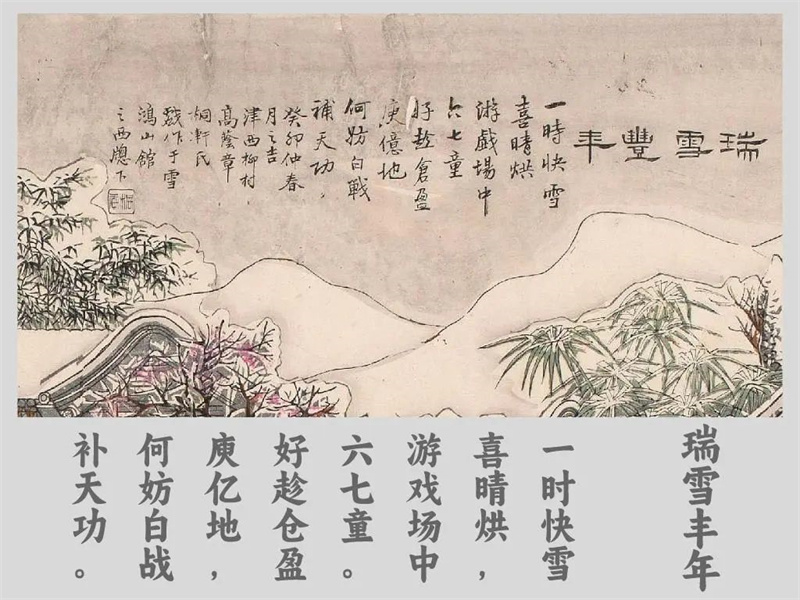 瑞雪豐年
一時快雪
喜晴烘
游戲場中
六七童
好趁倉盈
庾億地
何妨白戰
補天功，
癸卯仲春
月之吉
津西柳村，
高蔭章
桐軒氏
戲作于雪
鴻山館
之西牕下
瑞雪丰年
一时快雪
喜晴烘，
游戏场中
六七童。
好趁仓盈
庾亿地，
何妨白战
补天功。